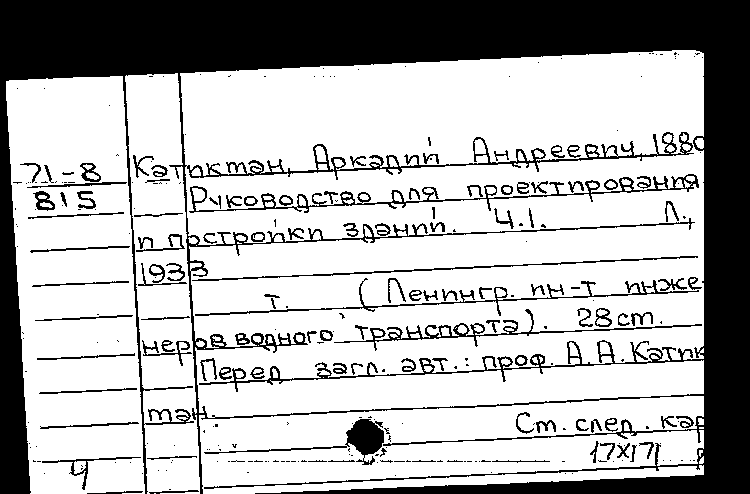 71-8
815
Катиктан, Аркадий Андреевич, 1880
Руководство для проектирования
и постройки зданий. Ч.1. Л.,
1933
т. (Ленингр. ин-т инже-
неров водного транспорта). 28 ст.
Перед загл. авт.: проф. А.А. Катик
тан.
Ст. след. кар
17х17
4